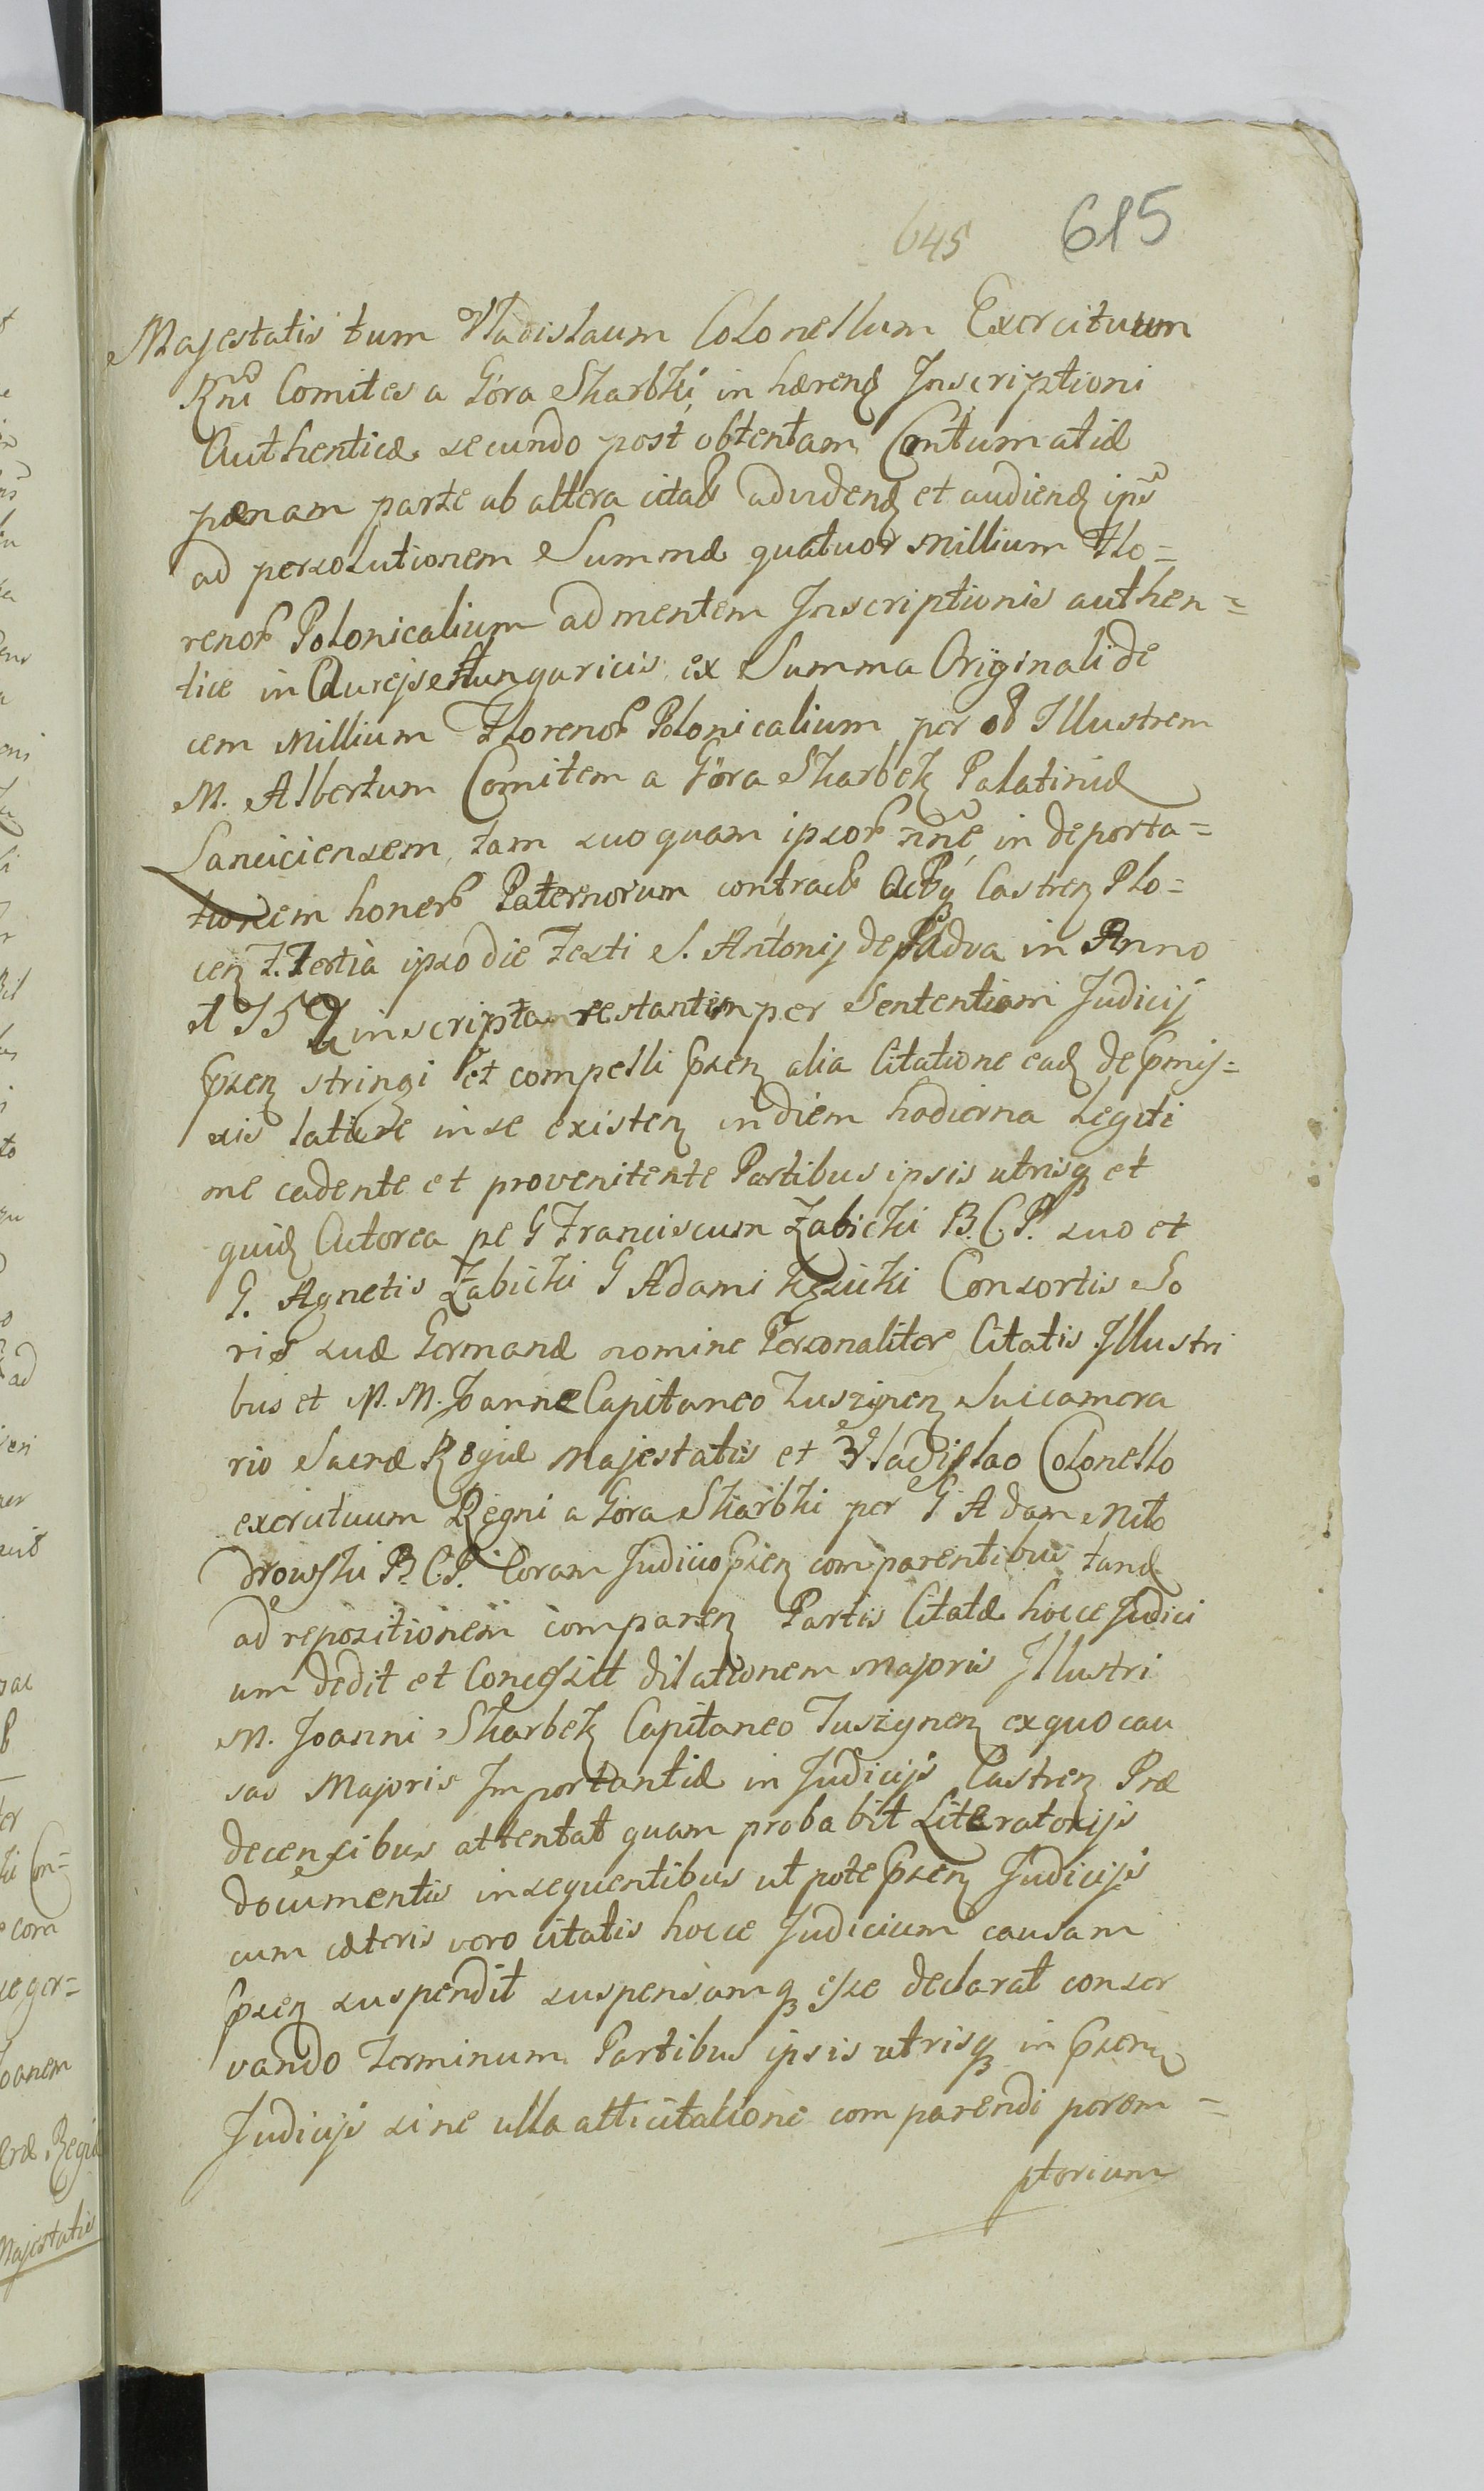 645 615
Majestatis tum Vladislaum Colonellum Exercituum
Rni Comites a Góra Skarbki, in hærend Inscriptioni
Authenticæ secundo post obtentam Contumatiæ
pænam parte ab altera citat ad vidend et audiend ips
ad persolutionem Summæ quatuor Millium Flo=
renor Polonicalium ad mentem Inscriptionis authen=
ticæ in Aureis Hungaricis ex Summa Originali de
cem Millium Florenor Polonicalium per od Illustrem
M. Albertum Comitem a Góra Skarbek Palatinid
Lanciciensem, tam suo quam ipsor nne in deporta=
tionem honer Paternorum contract Actis Castren Plo=
cen F. Tertia ipso die Festi S. Antonij de Padua in Anno
1759 inscripta restantem per Sententiam Judicij
pnsen stringi et compelli pnsen alia Citatione ead de pmis=
sis latiore in se existen in diem hodierna legiti
me cadente et provenitente Partibus ipsis utrisq et
quid Actorea pe G Franciscum Zabicki B. C. P. suo et
G. Agnetis Zabicki G Adami Consortis So
ris suæ Germanæ nomine Personaliter Citatis Illustri
bus et M. M. Joanne Capitaneo Tuszynen Succamera
rio Sacræ Regiæ Majestatis et Vladislao Colonello
exercituum Regni a Góra Skarbki per G Adam Mito
drowski B. C. P. Coram Judicio pnsen comparentibus tand
ad repositionem comparen Partis Citatæ hocce Judici
um dedit et Concessit dilationem Majoris Illustri
M. Joanni Skarbek Capitaneo Tuszynen ex quo cau
sas Majoris Importantiæ in Judicijs Castren Præ
decensibus attentat quam probabit Literatorijs
documentis in sequentibus ut pote pnsen Judicijs
cum cæteris vero citatis hocce Judicium causam
pnsen suspendit suspensamq esse declarat conser
vando Terminum Partibus ipsis utrisq in pnsen
Judicijs sine ulla atticitatione comparendi perem=
ptorium